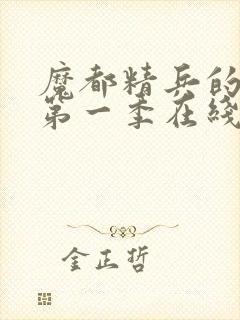 魔都精兵的
第一季在线
金正哲